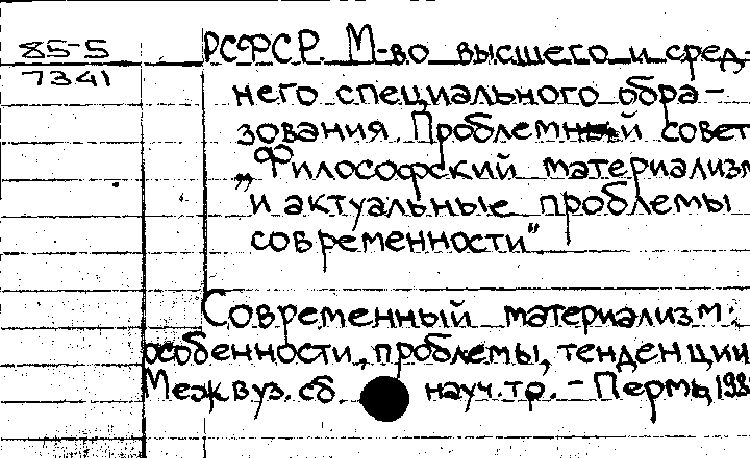 85-5
7341
РСФСР. М-во высшего и сред-
него специального обра-
зования. Проблемный совет
„Философский материализм
и актуальные проблемы
современности"
Современный материализм:
особенности, проблемы, тенденции
Межвуз. сб. науч. тр. - Пермь,